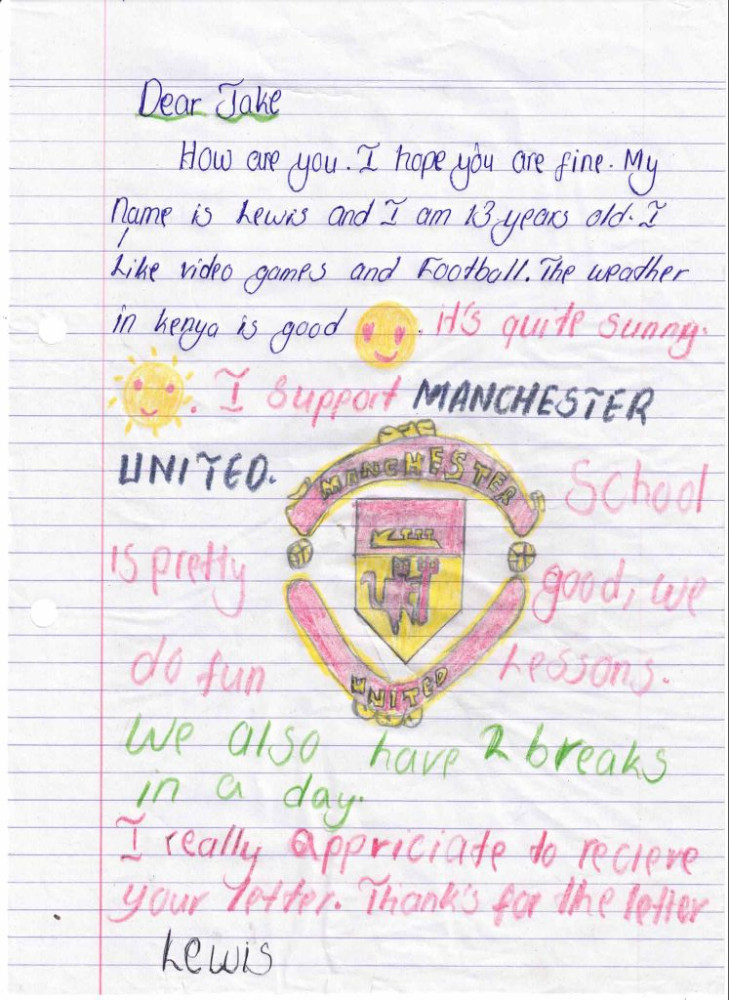 Dear Jake
How are you. I hope you are fine. My
Name is Lewis and I am 13 years old. I
Like video games and Football. The weather
in kenya is good . it's quite sunny.
. I support MANCHESTER
UNITED.
MANCHESTER
School
is pretty good, we
do fun Lessons.
UNITED
We also have 2 breaks
in a day.
I really appriciate to recieve
your letter. Thank's for the letter
Lewis